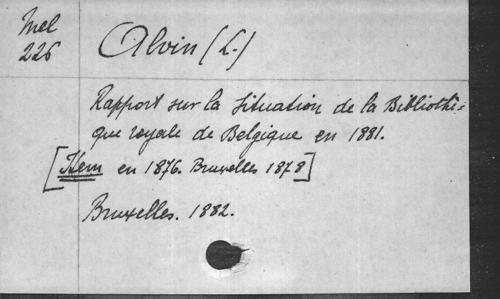 Mel
226
Alvin (L.)
Rapport sur la situation de la Bibliothè-
que royale de Belgique en 1881.
[Item en 1876. Bruxelles 1878]
Bruxelles. 1882.